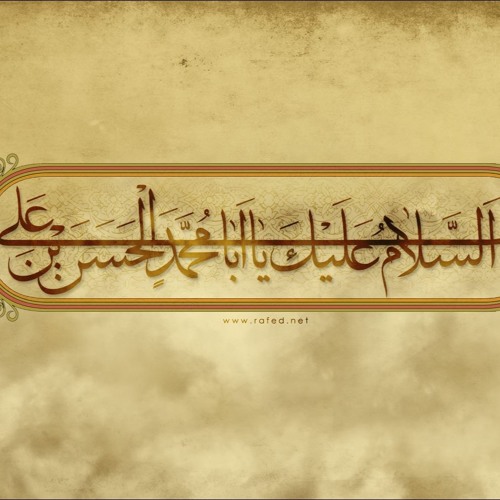 السَّلامُ عَلَيكَ يا أَبا مُحَمَّدٍ الْحَسَنَ بْنَ عَلي
www.rafed.net